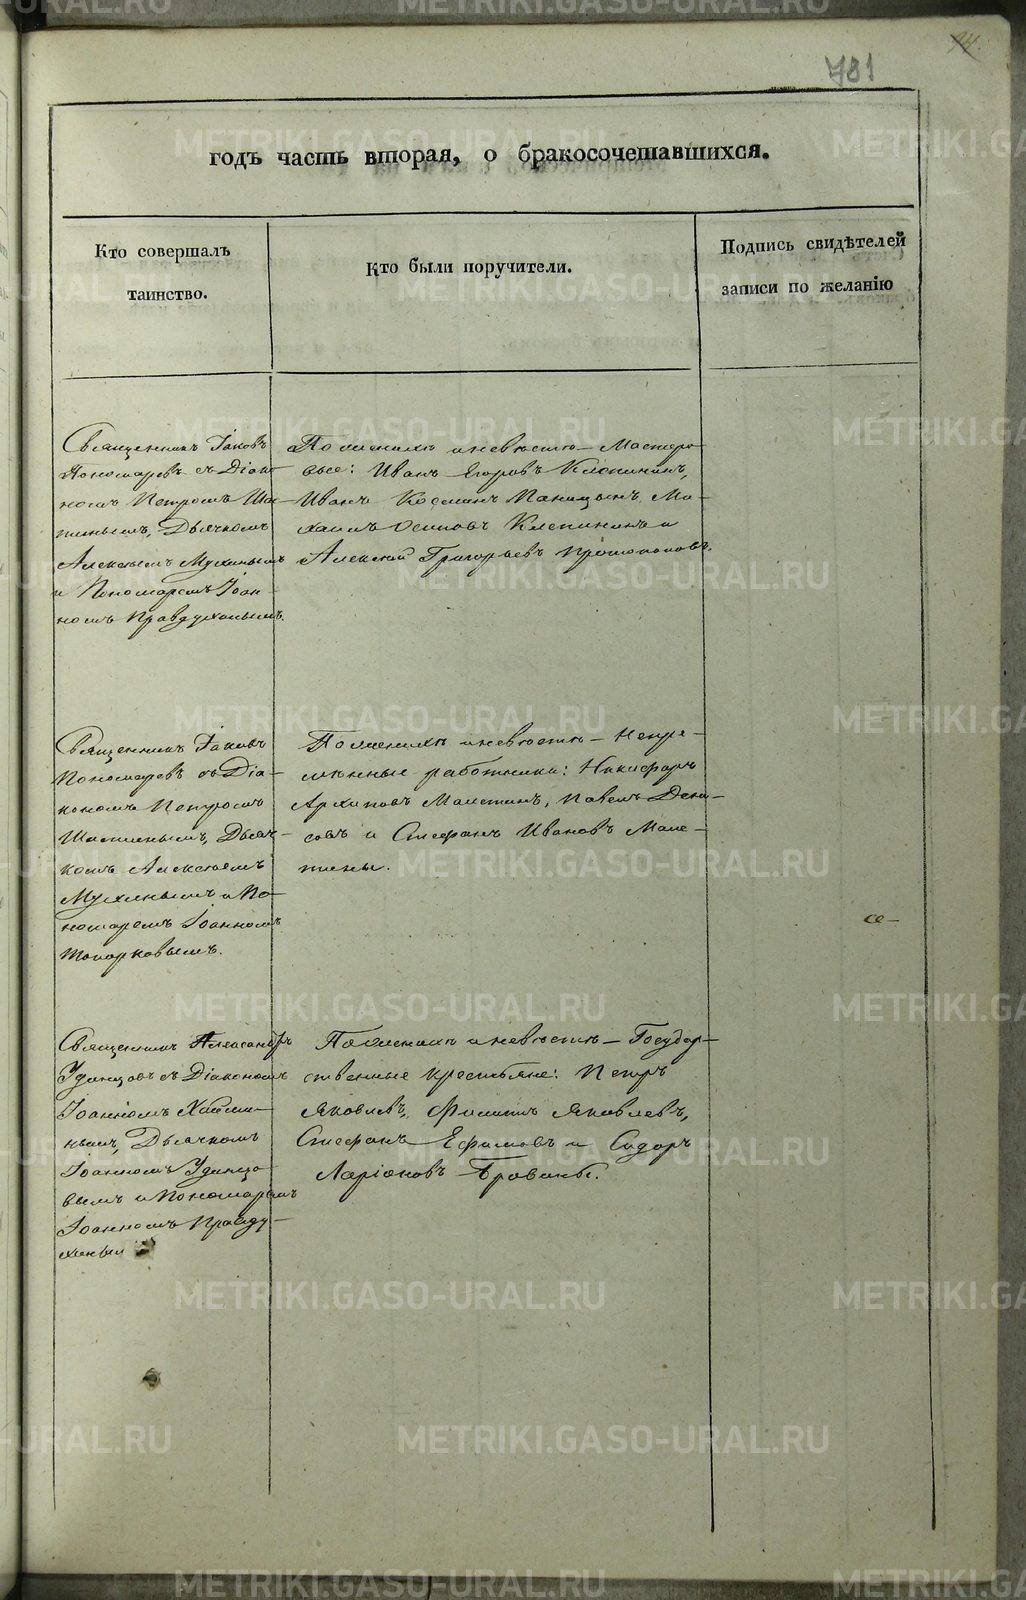 781
94.
годъ часть вторая, о бракосочетавшихся.
Кто совершалъ
таинство.
Кто были поручители.
Подпись свидѣтелей
записи по желанію
Священникъ Іаковъ
Пономаревъ съ Діако-
номъ Петромъ
Дьячкомъ
Алексѣемъ Мухинымъ
и Пономаремъ Іоан-
номъ Правдухинымъ.
По женихѣ и невѣстѣ – Мастеро-
вые: Иванъ Егоровъ Клепининъ,
Иванъ Косминъ Паницынъ, Ми-
хаилъ Осиповъ Клепининъ и
Алексѣй Григорьевъ Протопоповъ.
Священникъ Іаковъ
Пономаревъ съ Діа-
кономъ Петромъ
Дьяч-
комъ Алексѣемъ
Мухинымъ и По-
номаремъ Іоанномъ
Топорковымъ.
По женихѣ и невѣстѣ – Непре-
мѣнные работники: Никифоръ
Архиповъ Павелъ Дени-
совъ и Стефанъ Ивановъ
се-
Священникъ Александръ
Удинцовъ съ Діакономъ
Іоанномъ
Дьячкомъ
Іоанномъ Удинцо-
вымъ и Пономаремъ
Іоанномъ Правду-
хиным
По женихѣ и невѣстѣ – Государ-
ственные крестьяне: Петръ
Яковлевъ, Филиппъ Яковлевъ,
Стефанъ Ефимовъ и Сидоръ
Ларіоновъ
METRIKI.GASO-URAL.RU